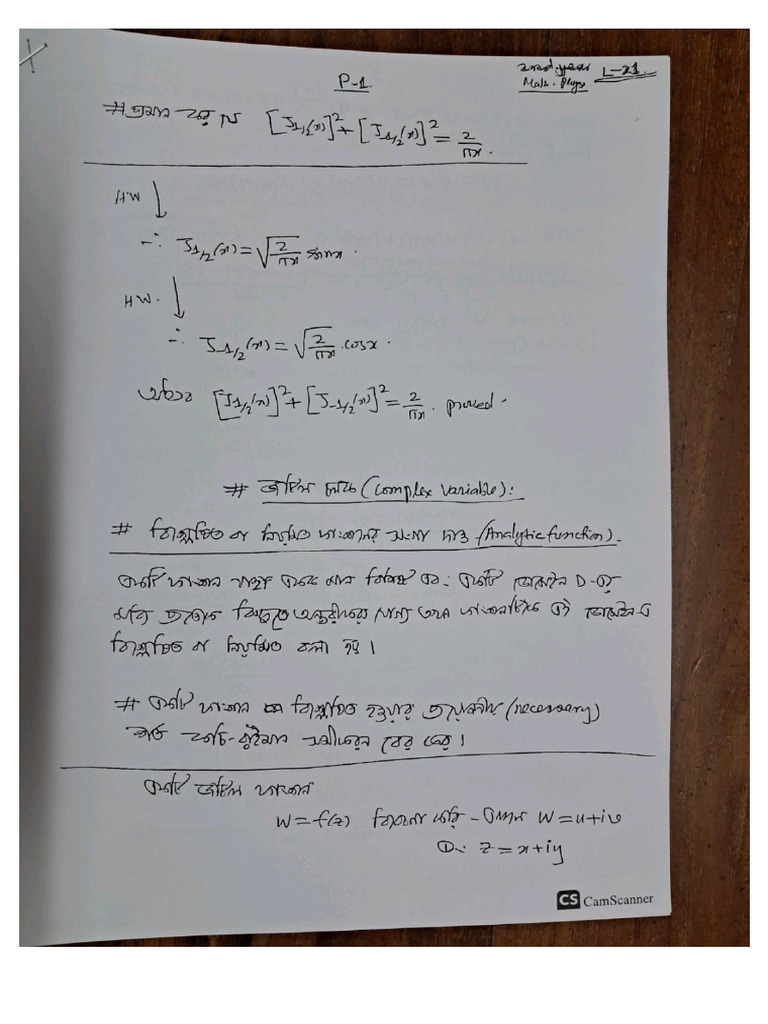 P-1
2nd year L-21
Math. Phys
# প্রমান কর যে [J₁/₂(x)]² + [J₋₁/₂(x)]² = 2/πx.
HW ↓
∴ J₁/₂(x) = √(2/πx) sinx.
HW. ↓
∴ J₋₁/₂(x) = √(2/πx) .cosx.
[J₁/₂(x)]² + [J₋₁/₂(x)]² = 2/πx. proved.
# জটিল চলক (Complex Variable):
# বিশ্লেষিত বা নিয়মিত ফাংশনের সংজ্ঞা দাও (Analytic function).
একটি ফাংশন যাহা একক মান বিশিষ্ট এবং একটি ডোমেইন D-এর
প্রত্যেক বিন্দুতে অন্তরীকরণ যোগ্য তখন ফাংশনটিকে ঐ ডোমেইন এ
বিশ্লেষিত বা নিয়মিত বলা হয়।
# একটি ফাংশন বিশ্লেষিত হওয়ার প্রয়োজনীয় (necessary)
শর্ত কচি-রাইমান সমীকরণ বের কর।
একটি জটিল ফাংশন
W = f(z) বিবেচনা করি - যেখানে W = u+iv
z = x+iy
CS CamScanner